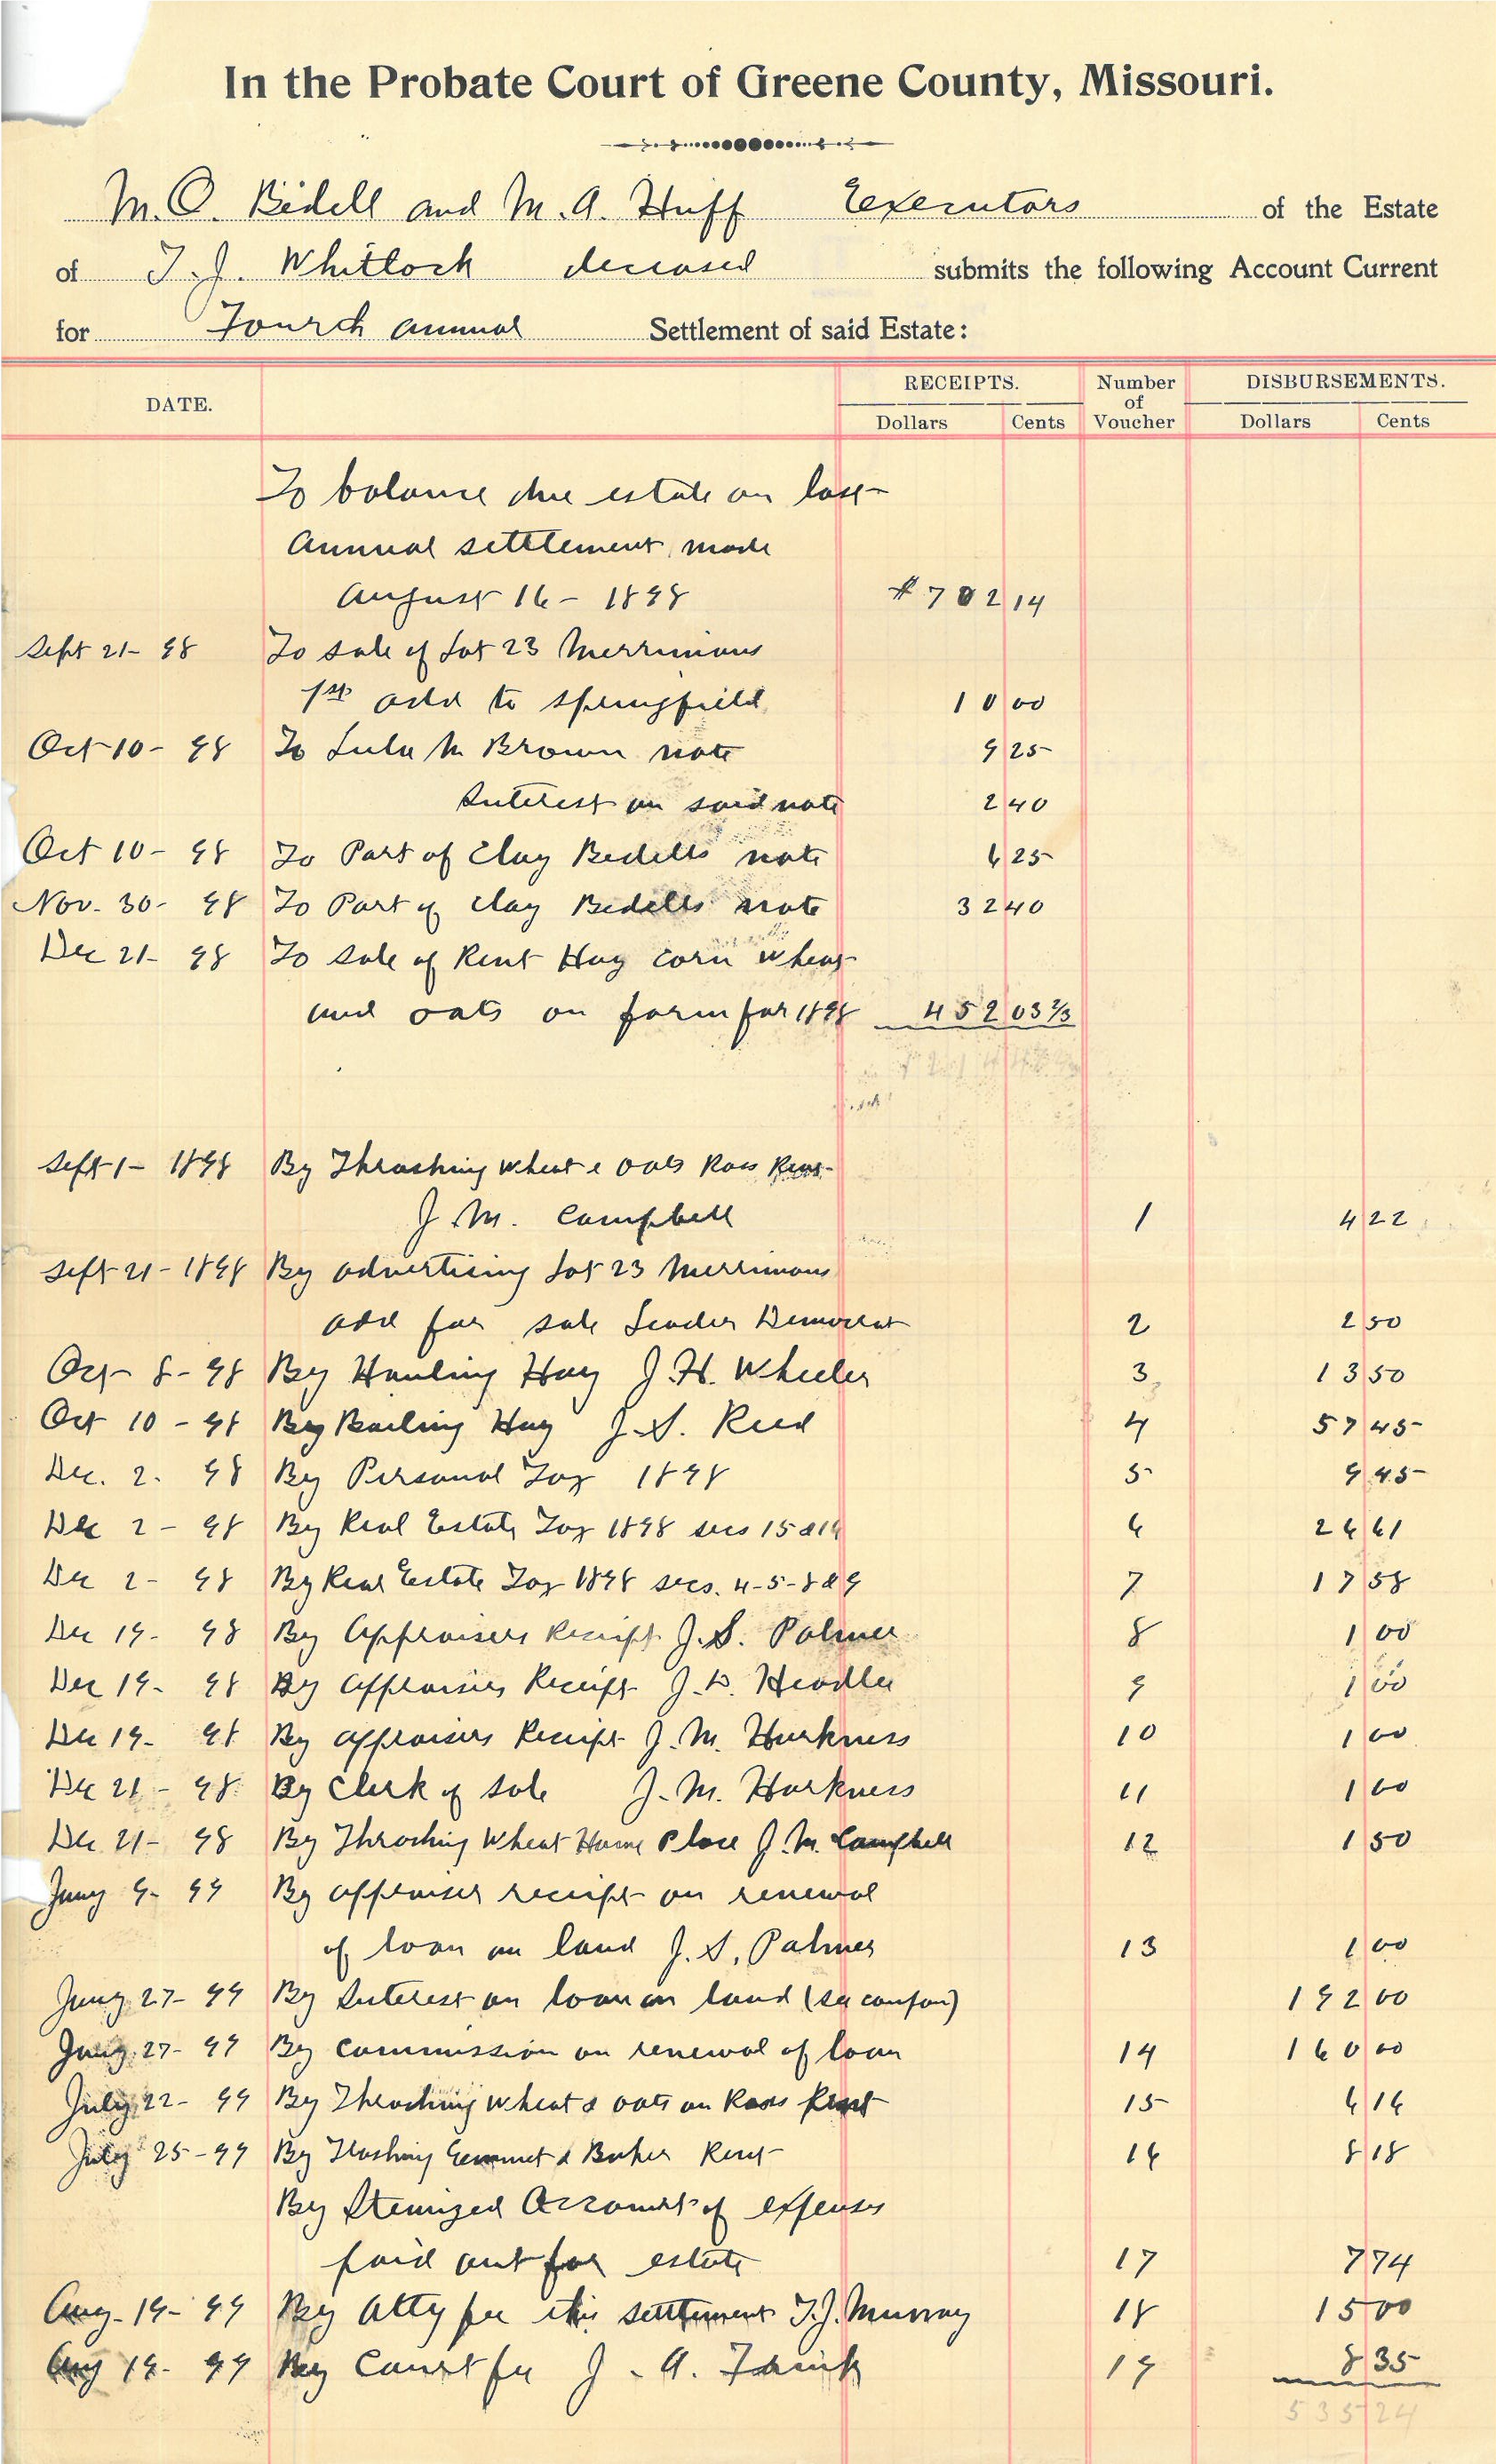 In the Probate Court of Greene County, Missouri.
M. O. Bedell and M. A. Huff Executors of the Estate
of T. J. Whitlock deceased submits the following Account Current
for Fourth annual Settlement of said Estate:
DATE. RECEIPTS. Number of Voucher DISBURSEMENTS.
Dollars Cents Dollars Cents
To balance due estate on last
Annual settlement made
August 16 - 1898 $702 14
Sept 21- 98 To sale of Lot 23 Merrimans
1st add to Springfield 10 00
Oct 10- 98 To Lula M Brown note 9 25
Interest on said note 2 40
Oct 10- 98 To Part of Clay Bedells note 6 25
Nov. 30- 98 To Part of Clay Bedells note 32 40
Dec 21- 98 To Sale of Rent Hay corn wheat
and oats on farm for 1898 452 03 2/3
Sept 1- 1898 By Thrashing wheat & oats Ross Rent
J. M. Campbell 1 4 22
Sept 21- 1898 By advertising Lot 23 Merrimans
add for sale Leader Democrat 2 2 50
Oct 8- 98 By Hauling Hay J. H. Wheeler 3 13 50
Oct 10 - 98 By Bailing Hay J. S. Reed 4 57 45
Dec. 2. 98 By Personal Tax 1898 5 9 45
Dec 2 - 98 By Real Estate Tax 1898 secs 15 & 16 6 26 61
Dec 2 - 98 By Real Estate Tax 1898 secs. 4-5-8 & 9 7 17 58
Dec 19- 98 By Appraisers Receipt J. S. Palmer 8 1 00
Dec 19- 98 By appraisers Receipt J. D. Headlee 9 1 00
Dec 19- 98 By appraisers Receipt J. M. Harkness 10 1 00
Dec 21 - 98 By Clerk of sale J. M. Harkness 11 1 00
Dec 21- 98 By Thrashing Wheat Home Place J. M. Campbell 12 1 50
Jany 9- 99 By appraiser receipt on renewal
of loan on land J. S. Palmer 13 1 00
Jany 27- 99 By Interest on loan on land (see coupon) 192 00
Jany 27- 99 By commission on renewal of loan 14 160 00
July 22- 99 By Thrashing wheat & oats on Ross Rent 15 6 16
July 25-99 By Thrashing Emmet & Baker Rent 16 8 18
By Itemized Account of expenses
paid out for estate 17 7 74
Aug- 19- 99 By Atty fee this settlement T. J. Murray 18 15 00
Aug 19- 99 By Court fee J. A. 19 8 35
535 24